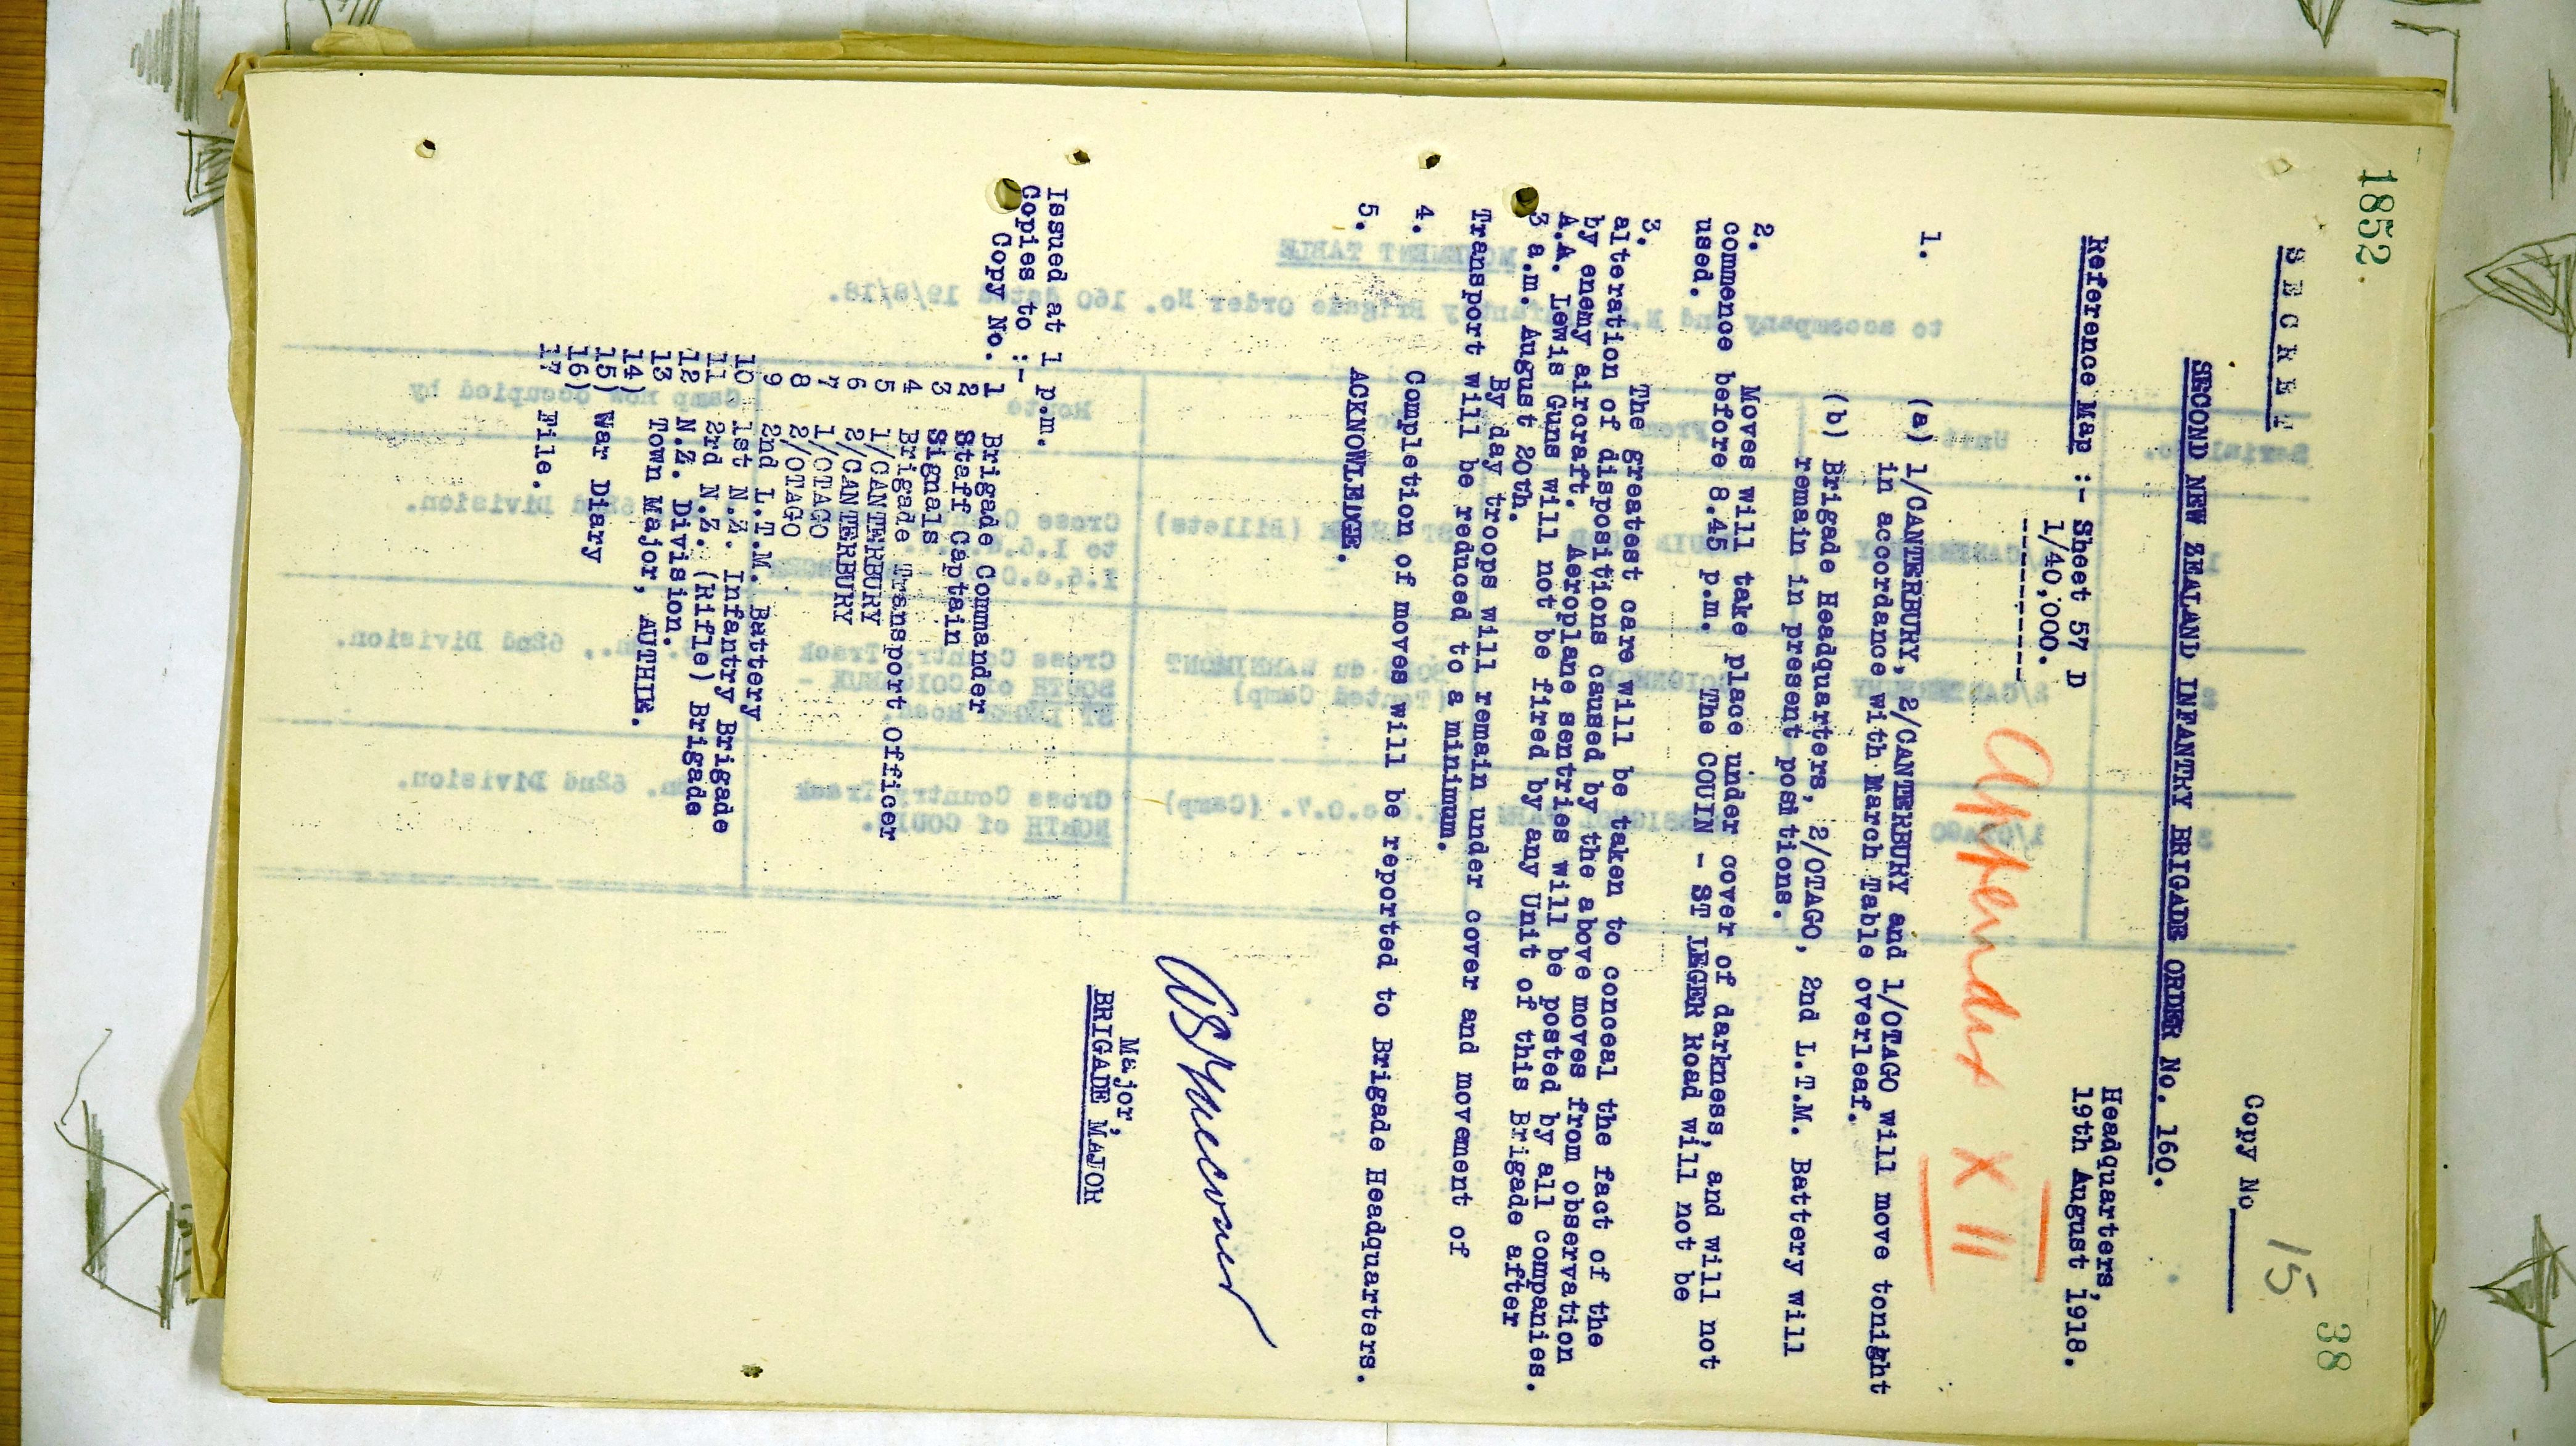 1852.
38
S E C R E T
Copy No 15
SECOND NEW ZEALAND INFANTRY BRIGADE ORDER No. 160.
Headquarters,
19th August 1918.
Reference Map :- Sheet 57 D
1/40,000.
----------
Appendix XII
1. (a) 1/CANTERBURY, 2/CANTERBURY and 1/OTAGO will move tonight
in accordance with March Table overleaf.
(b) Brigade Headquarters, 2/OTAGO, 2nd L.T.M. Battery will
remain in present positions.
2. Moves will take place under cover of darkness, and will not
commence before 8.45 p.m. The COUIN - ST LEGER Road will not be
used.
3. The greatest care will be taken to conceal the fact of the
alteration of dispositions caused by the above moves from observation
by enemy aircraft. Aeroplane sentries will be posted by all companies.
A.A. Lewis Guns will not be fired by any Unit of this Brigade after
3 a.m. August 20th.
By day troops will remain under cover and movement of
Transport will be reduced to a minimum.
4. Completion of moves will be reported to Brigade Headquarters.
5. ACKNOWLEDGE.
Major,
BRIGADE MAJOR
Issued at 1 p.m.
Copies to :-
Copy No. 1 Brigade Commander
2 Staff Captain
3 Signals
4 Brigade Transport Officer
5 1/CANTERBURY
6 2/CANTERBURY
7 1/OTAGO
8 2/OTAGO
9 2nd L.T.M. Battery
10 1st N.Z. Infantry Brigade
11 2rd N.Z. (Rifle) Brigade
12 N.Z. Division.
13 Town Major, AUTHIE.
14)
15) War Diary
16)
17 File.